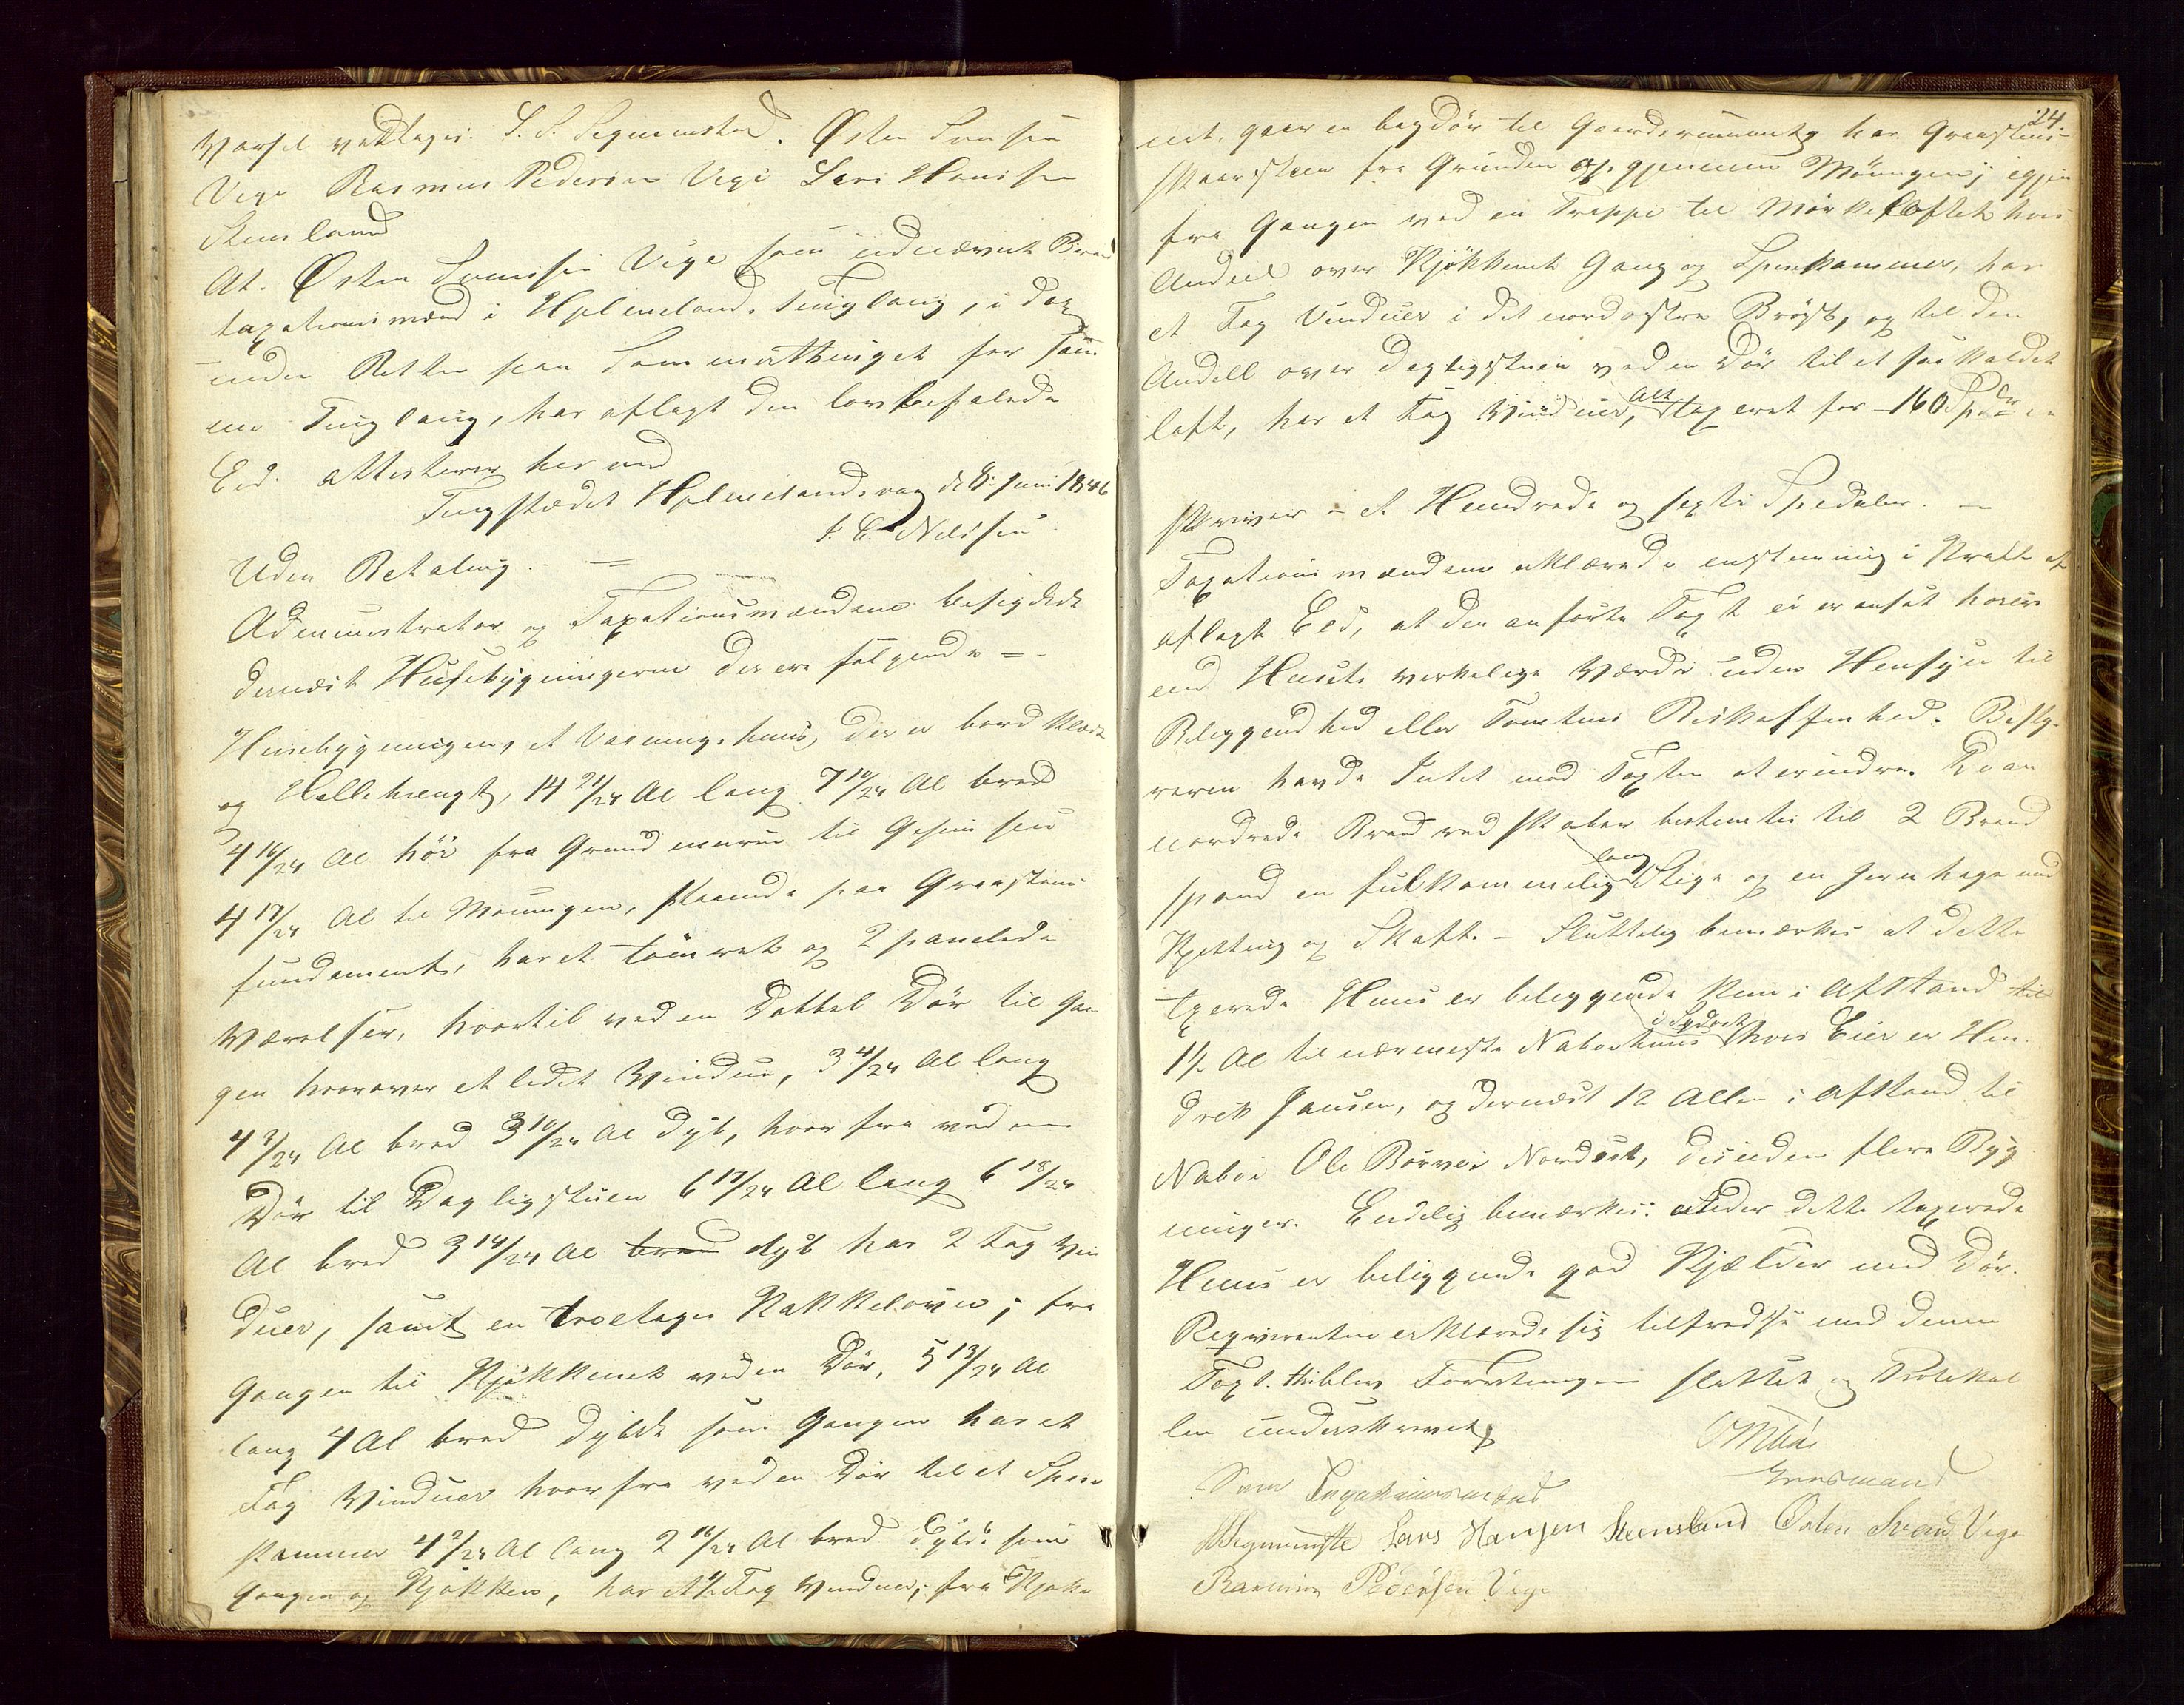 Varsel vedtages. Østen Svensen
Vige Rasmus Pedersen Vige Lars Hansen
Steensland
At Østen Svensen Vige som udnævnt Brand
taxationsmænd i Hjelmelands Tinglaug, i dag
inden Retten paa Sommerthinget for samme
Tinglaug, har aflagt den lovbefalede
Eed. attesterer herved
Tingstædet Hjelmelandsvaag d 8 Juni 1846
Nilssen
Uden Betaling. =
Administrator og Taxationsmændene besigtede
dernæst Husebygningerne der ere følgende =
Husebygningen, et Vaaningshuus, der er bordklædt
og Hellehængt, 14 21/24 Al lang 7 10/24 Al bred
4 16/24 Al høi fra Grundmuren til Gesimsen
4 17/24 Al til Mønningen, staaende paa Graasteens
fundament, har et tømret og 2 panelede
Værelser, hvortil ved en Dobbel Dør til Gan
gen hvorover et lidet Vindue, 3 4/24 Al lang
4 3/24 Al bred 3 10/24 Al dyb, hvorfra ved en
Dør til Dagligstuen 6 17/24 Al lang 6 18/24
Al bred 3 14/24 Al bred dyb har 2 Fag Vin
duer, samt en troetages Kakkelovn; fra
Gangen til Kjøkkenet ved en Dør, 5 13/24 Al
lang 4 Al bred dybde som Gangen har et
Fag Vinduer hvorfra ved en Dør til et Spise
kammer 4 2/24 Al lang 2 16/24 Al bred dybde som
Gangen og Kjøkken, har et ½ Fag Vinduer; fra Kjøke
24
net, gaar en bagdør til Gaardsrummet har Graasteens
skaarsteen fra Grunden op gjennem Mønningen; igjen
fra Gangen ved en Trappe til Mørkeloftet hvis
Andeel over Kjøkkenet Gang og Spisekammer, har
et Fag Vinduer i det nordøstre Brøst, og til den
Andell over Dagligstuen ved en Dør til et saa kaldet
loft, har et Fag Vinduer, Alt taxeret for 160 Spdlr
skriver et Hundrede og sexti Speciedaler. —
Taxationsmændene erklærede enstemmig i Kraft af
aflagt Eed, at den anførte Taxt ei er ansat høiere
end Husets verkelige Værdi uden Hensyn til
Beliggendhed eller Tomtens Beskaffenhed. Besty-
reren havde Intet mod Taxten at erindre. De an
nordrede Brandredskaber bestemtes til 2 Brand
spand en fulkommelig lang Stige og en Jernhage med
Kjetting og Skaft. – Sluttelig bemærkes at dette
taxerede Huus er beliggende kun i Afstand til
1½ Al til nærmeste Nabohuus i Sydost hvis Eier er Hen
drik Jansen, og dernæst 12 Allen i Afstand til
Naboe Ole Børvei Nordost, desuden flere Byg
ninger. Endelig bemærkes: under dette taxerede
Huus er beliggende god Kjælder med Dør.
Reqvirenten erklærede sig tilfreds med denne
Taxt. Forretningen sluttet og Protokol
len underskrevet
Som Taxationsmænd
Lars Hansen Steensland Østen Svend Vige
Rasmus Pedersen Vige